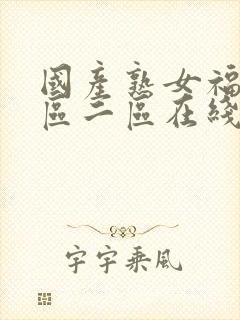 國產熟女福
區二區在綫
宇宇乘风